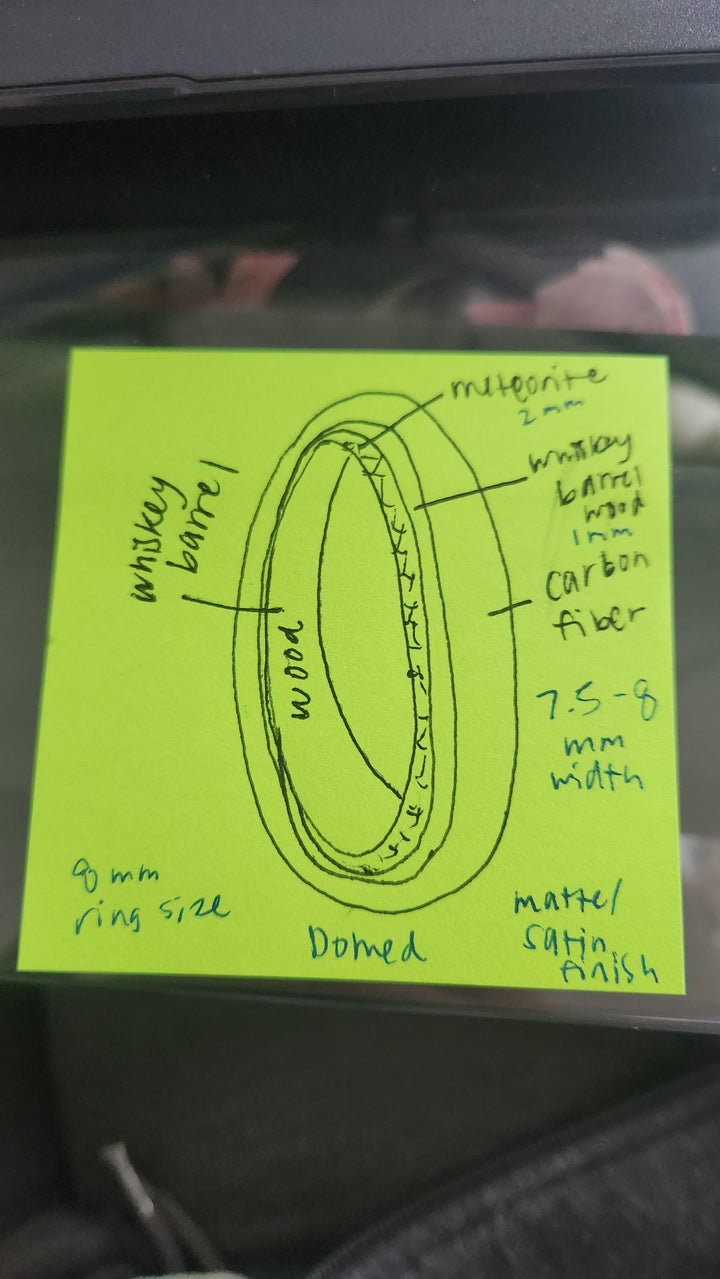 meteorite
2mm
whiskey
barrel
wood
1mm
carbon
fiber
7.5-8
mm
width
whiskey
barrel
wood
8mm
ring size
Domed
matte/
satin
finish